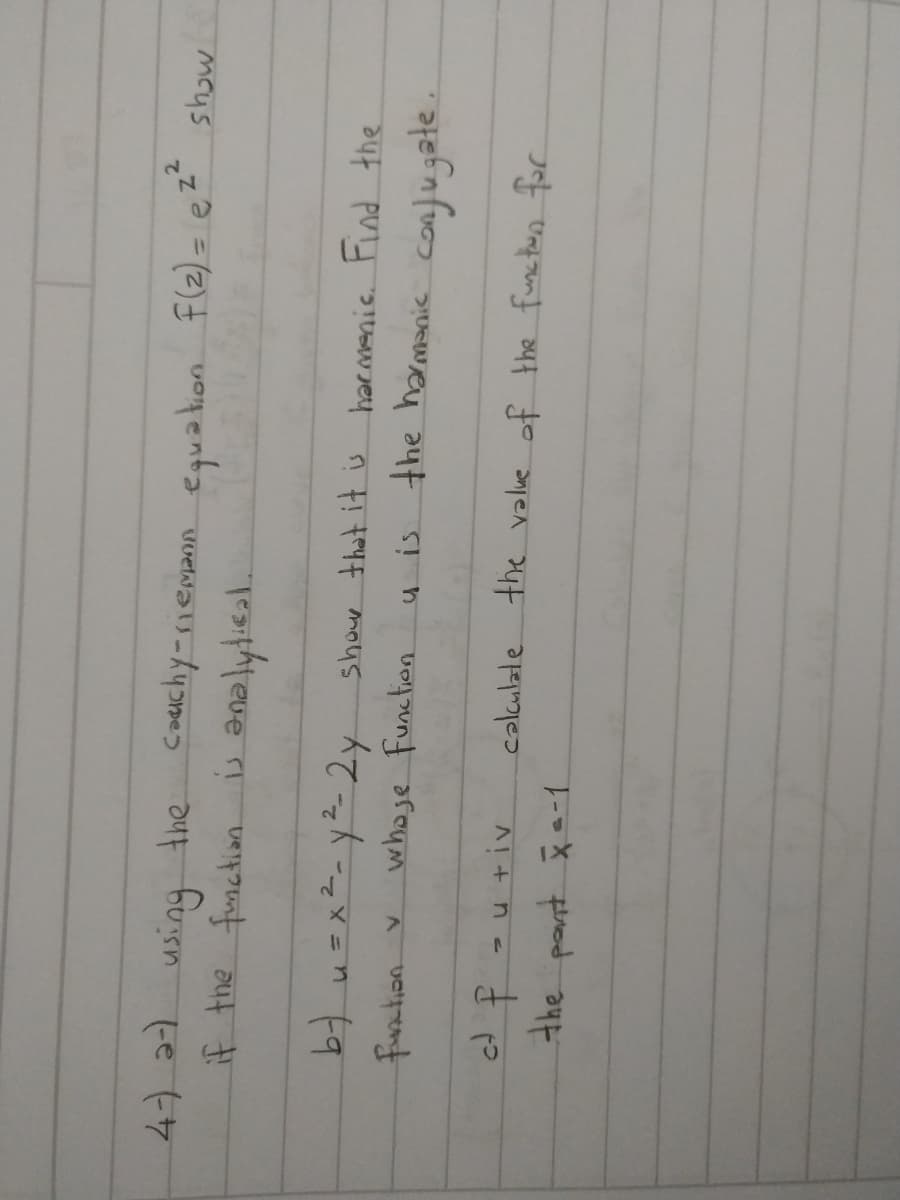 4-) a-) using the cauchy-riemann equation F(z) = e^z² show
if the function is analytical.
b-) u = x² - y² - 2y show that it is harmonic. Find the
function v whose function u is the harmonic conjugate.
c-) f = u + iv calculate the value of the function for
the point